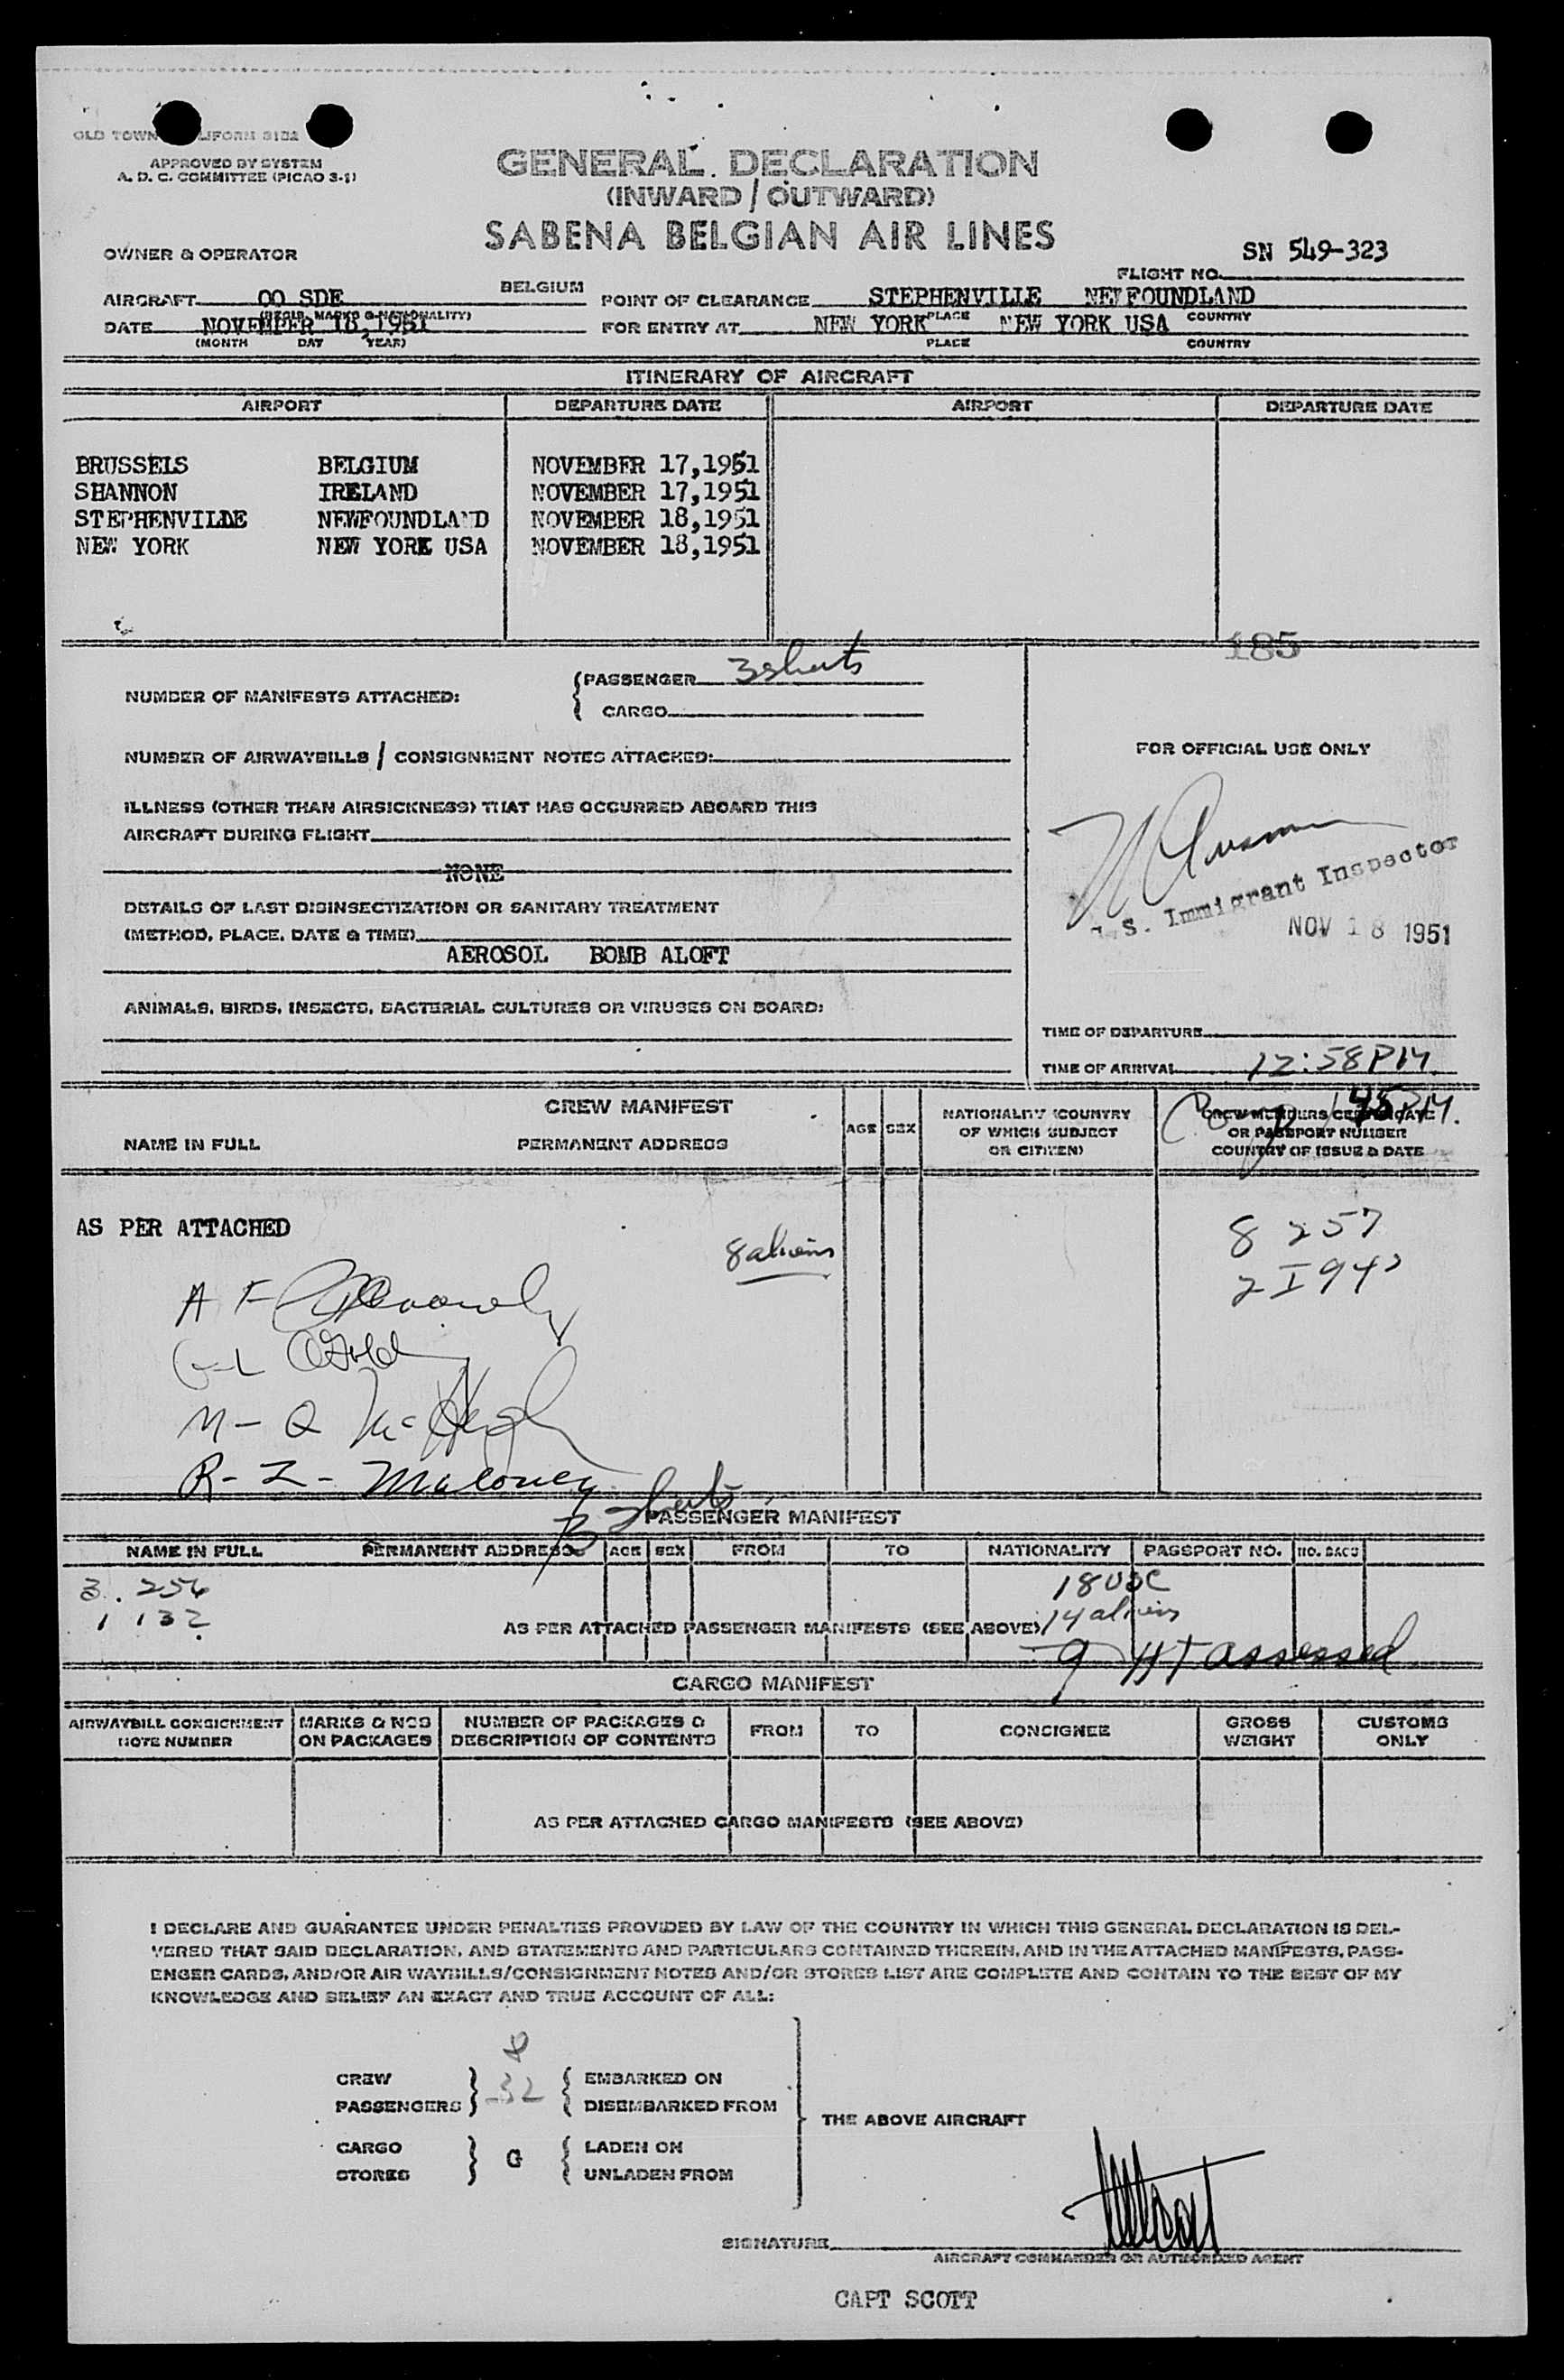 OLD TOWN
APPROVED BY SYSTEM
A. D. C. COMMITTEE (PICAO 3-1)
GENERAL DECLARATION
(INWARD / OUTWARD)
SABENA BELGIAN AIR LINES
OWNER & OPERATOR
SN 549-323
FLIGHT NO.
AIRCRAFT OO SDE BELGIUM
(REGIS. MARKS & NATIONALITY)
POINT OF CLEARANCE STEPHENVILLE NEWFOUNDLAND
PLACE COUNTRY
DATE NOVEMBER 18,1951
(MONTH DAY YEAR)
FOR ENTRY AT NEW YORK NEW YORK USA
PLACE COUNTRY
ITINERARY OF AIRCRAFT
AIRPORT DEPARTURE DATE AIRPORT DEPARTURE DATE
BRUSSELS BELGIUM NOVEMBER 17,1951
SHANNON IRELAND NOVEMBER 17,1951
STEPHENVILDE NEWFOUNDLAND NOVEMBER 18,1951
NEW YORK NEW YORK USA NOVEMBER 18,1951
185
NUMBER OF MANIFESTS ATTACHED:
PASSENGER 3 sheets
CARGO
NUMBER OF AIRWAYBILLS / CONSIGNMENT NOTES ATTACHED:
FOR OFFICIAL USE ONLY
ILLNESS (OTHER THAN AIRSICKNESS) THAT HAS OCCURRED ABOARD THIS
AIRCRAFT DURING FLIGHT
NONE
DETAILS OF LAST DISINSECTIZATION OR SANITARY TREATMENT
(METHOD, PLACE, DATE & TIME)
AEROSOL BOMB ALOFT
S. Immigrant Inspector
NOV 18 1951
ANIMALS, BIRDS, INSECTS, BACTERIAL CULTURES OR VIRUSES ON BOARD:
TIME OF DEPARTURE
TIME OF ARRIVAL 12:58 PM.
CREW MANIFEST
NAME IN FULL PERMANENT ADDRESS AGE SEX
NATIONALITY (COUNTRY
OF WHICH SUBJECT
OR CITIZEN)
CREW MEMBERS CERTIFICATE
OR PASSPORT NUMBER
COUNTRY OF ISSUE & DATE
45 PM.
AS PER ATTACHED
8 aliens
8 257
2 I 94
A F
M - Q McHugh
R - Z - Maloney
3 sheets
PASSENGER MANIFEST
NAME IN FULL PERMANENT ADDRESS AGE SEX FROM TO NATIONALITY PASSPORT NO. NO. BAGS
3. 256
1 132
18 USC
14 aliens
AS PER ATTACHED PASSENGER MANIFESTS (SEE ABOVE)
9 HT assessed
CARGO MANIFEST
AIRWAYBILL CONSIGNMENT
NOTE NUMBER
MARKS & NOS
ON PACKAGES
NUMBER OF PACKAGES &
DESCRIPTION OF CONTENTS
FROM TO CONSIGNEE
GROSS
WEIGHT
CUSTOMS
ONLY
AS PER ATTACHED CARGO MANIFESTS (SEE ABOVE)
I DECLARE AND GUARANTEE UNDER PENALTIES PROVIDED BY LAW OF THE COUNTRY IN WHICH THIS GENERAL DECLARATION IS DEL-
VERED THAT SAID DECLARATION, AND STATEMENTS AND PARTICULARS CONTAINED THEREIN, AND IN THE ATTACHED MANIFESTS, PASS-
ENGER CARDS, AND/OR AIR WAYBILLS/CONSIGNMENT NOTES AND/OR STORES LIST ARE COMPLETE AND CONTAIN TO THE BEST OF MY
KNOWLEDGE AND BELIEF AN EXACT AND TRUE ACCOUNT OF ALL:
8
CREW EMBARKED ON
32
PASSENGERS DISEMBARKED FROM
THE ABOVE AIRCRAFT
CARGO LADEN ON
STORES UNLADEN FROM
SIGNATURE
AIRCRAFT COMMANDER OR AUTHORIZED AGENT
CAPT SCOTT